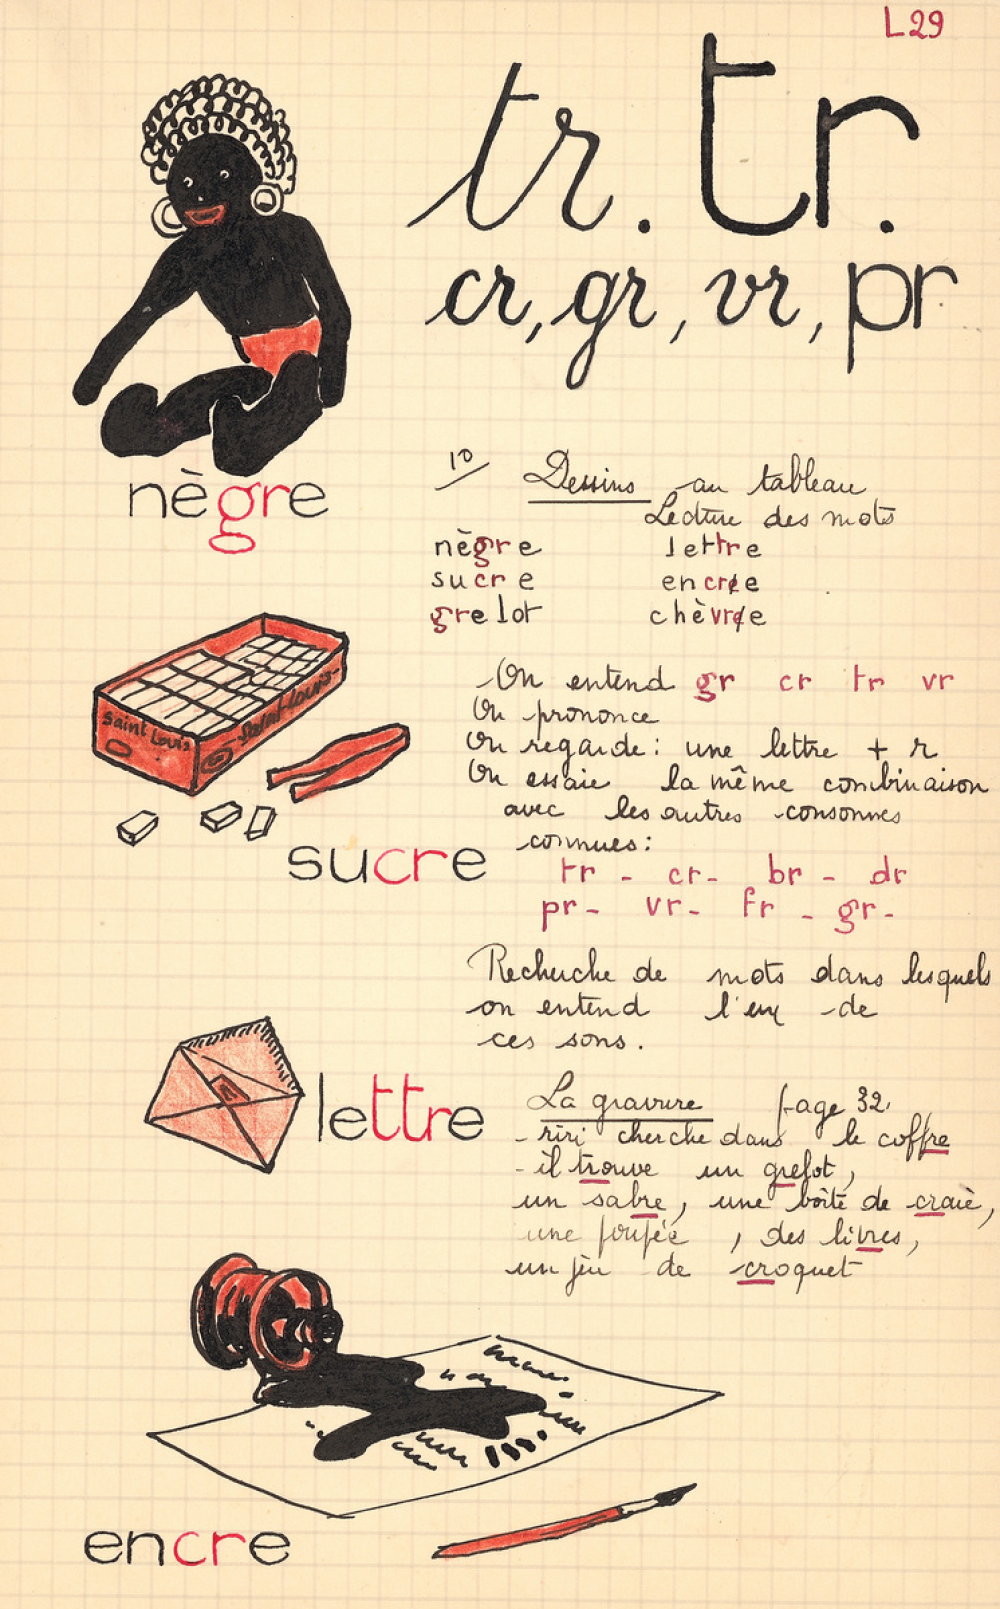 L29
tr. tr.
cr, gr, vr, pr
nègre
1º Dessins au tableau
Lecture des mots
nègre lettre
sucre encre
grelot chèvre
Saint Louis
Saint-Louis-
sucre
On entend gr cr tr vr
On prononce
On regarde : une lettre + r
On essaie la même combinaison
avec les autres consonnes
connues :
tr - cr - br - dr
pr - vr - fr - gr -
Recherche de mots dans lesquels
on entend l'un de
ces sons.
lettre
La gravure page 32.
- riri cherche dans le coffre
- il trouve un grelot,
un sabre, une boîte de craie,
une poupée, des livres,
un jeu de croquet
encre